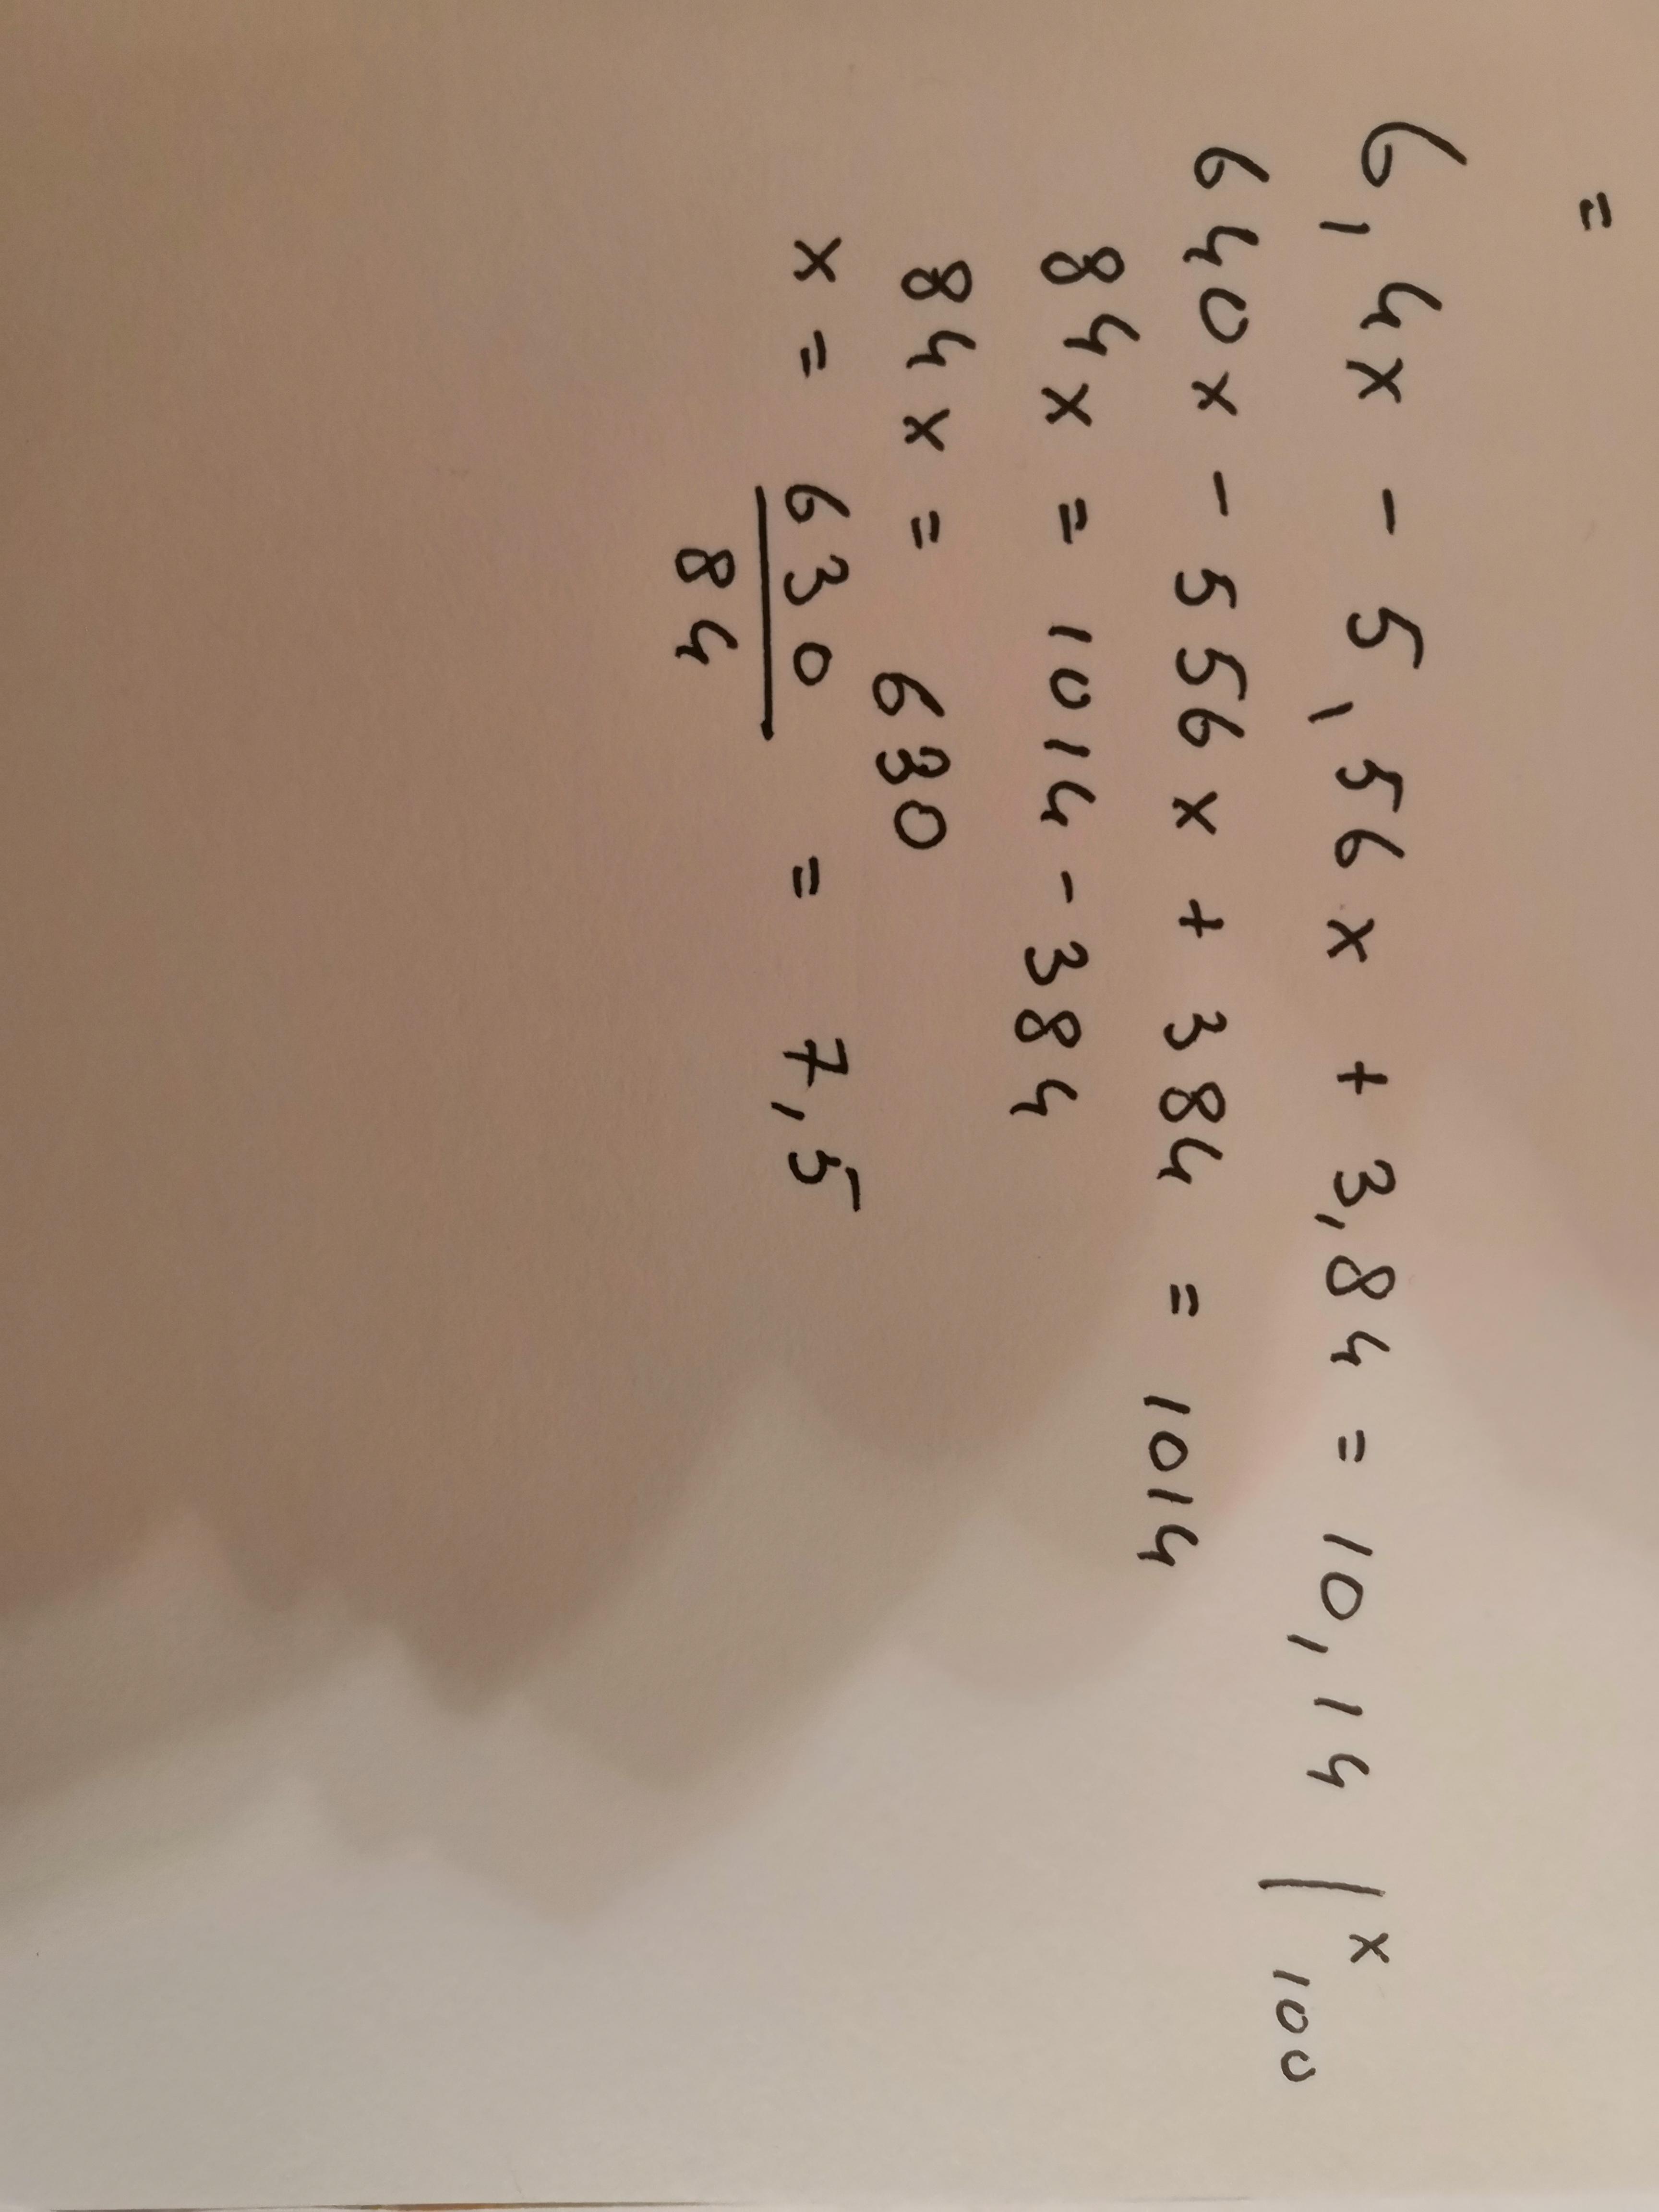 =
6,4x - 5,56x + 3,84 = 10,14 | x 100
640x - 556x + 384 = 1014
84x = 1014 - 384
84x = 630
x = 630/84 = 7,5